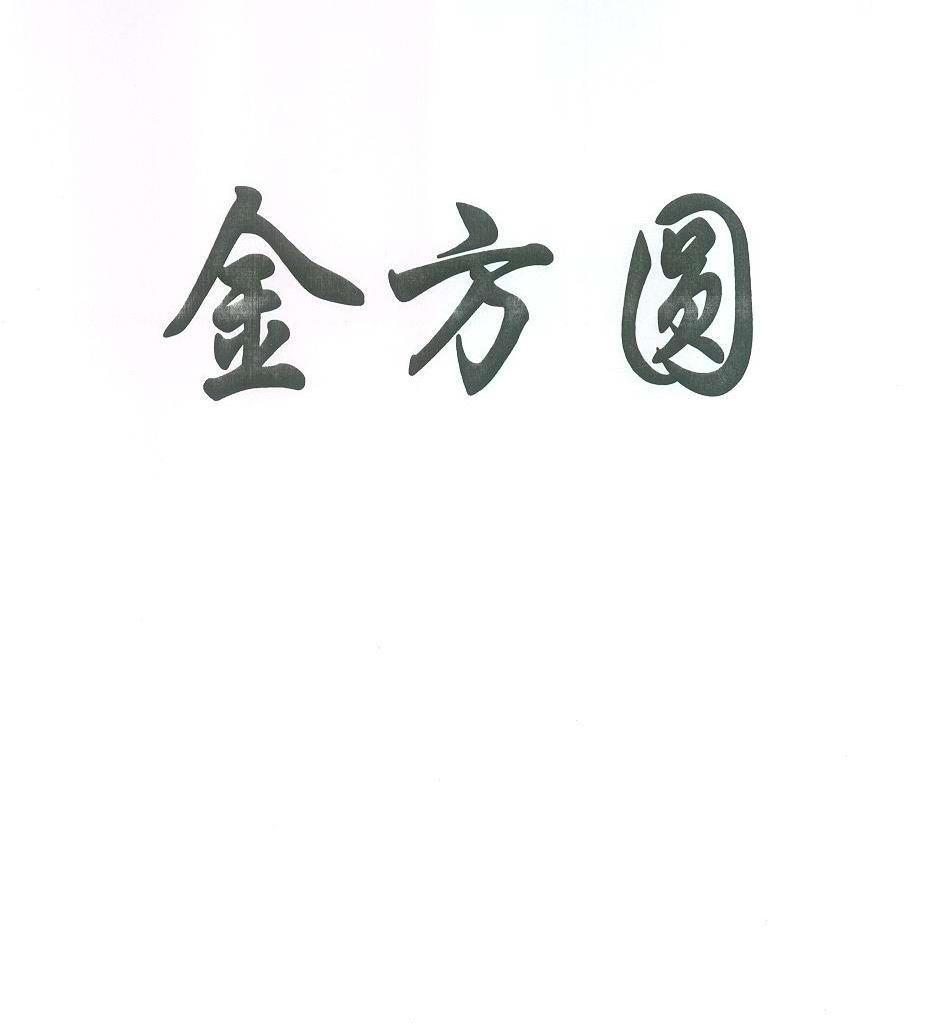 金方圆